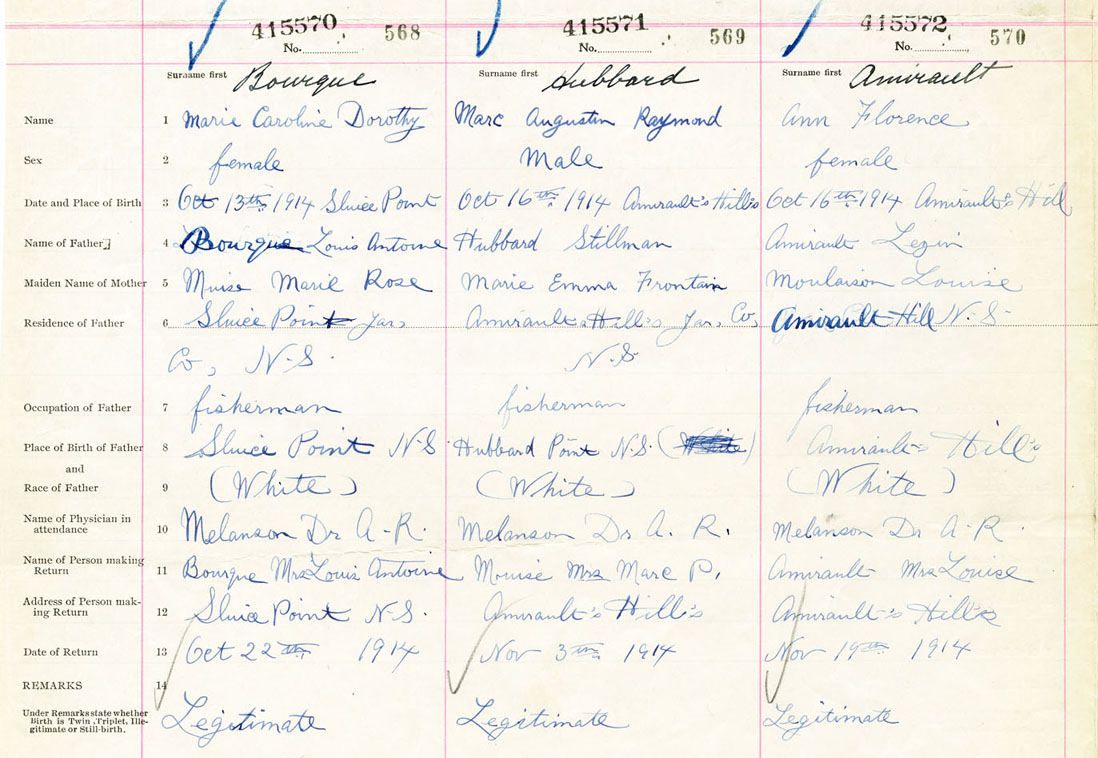 415570 568 415571 569 415572 570
No. No. No.
Surname first Bourque Surname first Hubbard Surname first Amirault
Name 1 Marie Caroline Dorothy Marc Augustin Raymond Ann Florence
Sex 2 female Male female
Date and Place of Birth 3 Oct 13th 1914 Sluice Point Oct 16th 1914 Amirault's Hill's Oct 16th 1914 Amirault's Hill
Name of Father 4 Bourque Louis Antoine Hubbard Stillman Amirault Lezin
Maiden Name of Mother 5 Muise Marie Rose Marie Emma Frontain Moulaison Louise
Residence of Father 6 Sluice Point Yar, Amirault's Hill's Yar, Co, Amirault Hill N.S.
Co, N.S. N.S.
Occupation of Father 7 fisherman fisherman fisherman
Place of Birth of Father 8 Sluice Point N.S Hubbard Point N.S. (White) Amirault's Hill's
and
Race of Father 9 (White) (White) (White)
Name of Physician in
attendance 10 Melanson Dr A-R. Melanson Dr A. R. Melanson Dr A-R.
Name of Person making
Return 11 Bourque Mrs Louis Antoine Mouise Mrs Marc P. Amirault Mrs Louise
Address of Person mak-
ing Return 12 Sluice Point N.S. Amirault's Hill's Amirault's Hill's
Date of Return 13 Oct 22th 1914 Nov 3th 1914 Nov 19th 1914
REMARKS 14
Under Remarks state whether
Birth is Twin, Triplet, Ille-
gitimate or Still-birth. Legitimate Legitimate Legitimate